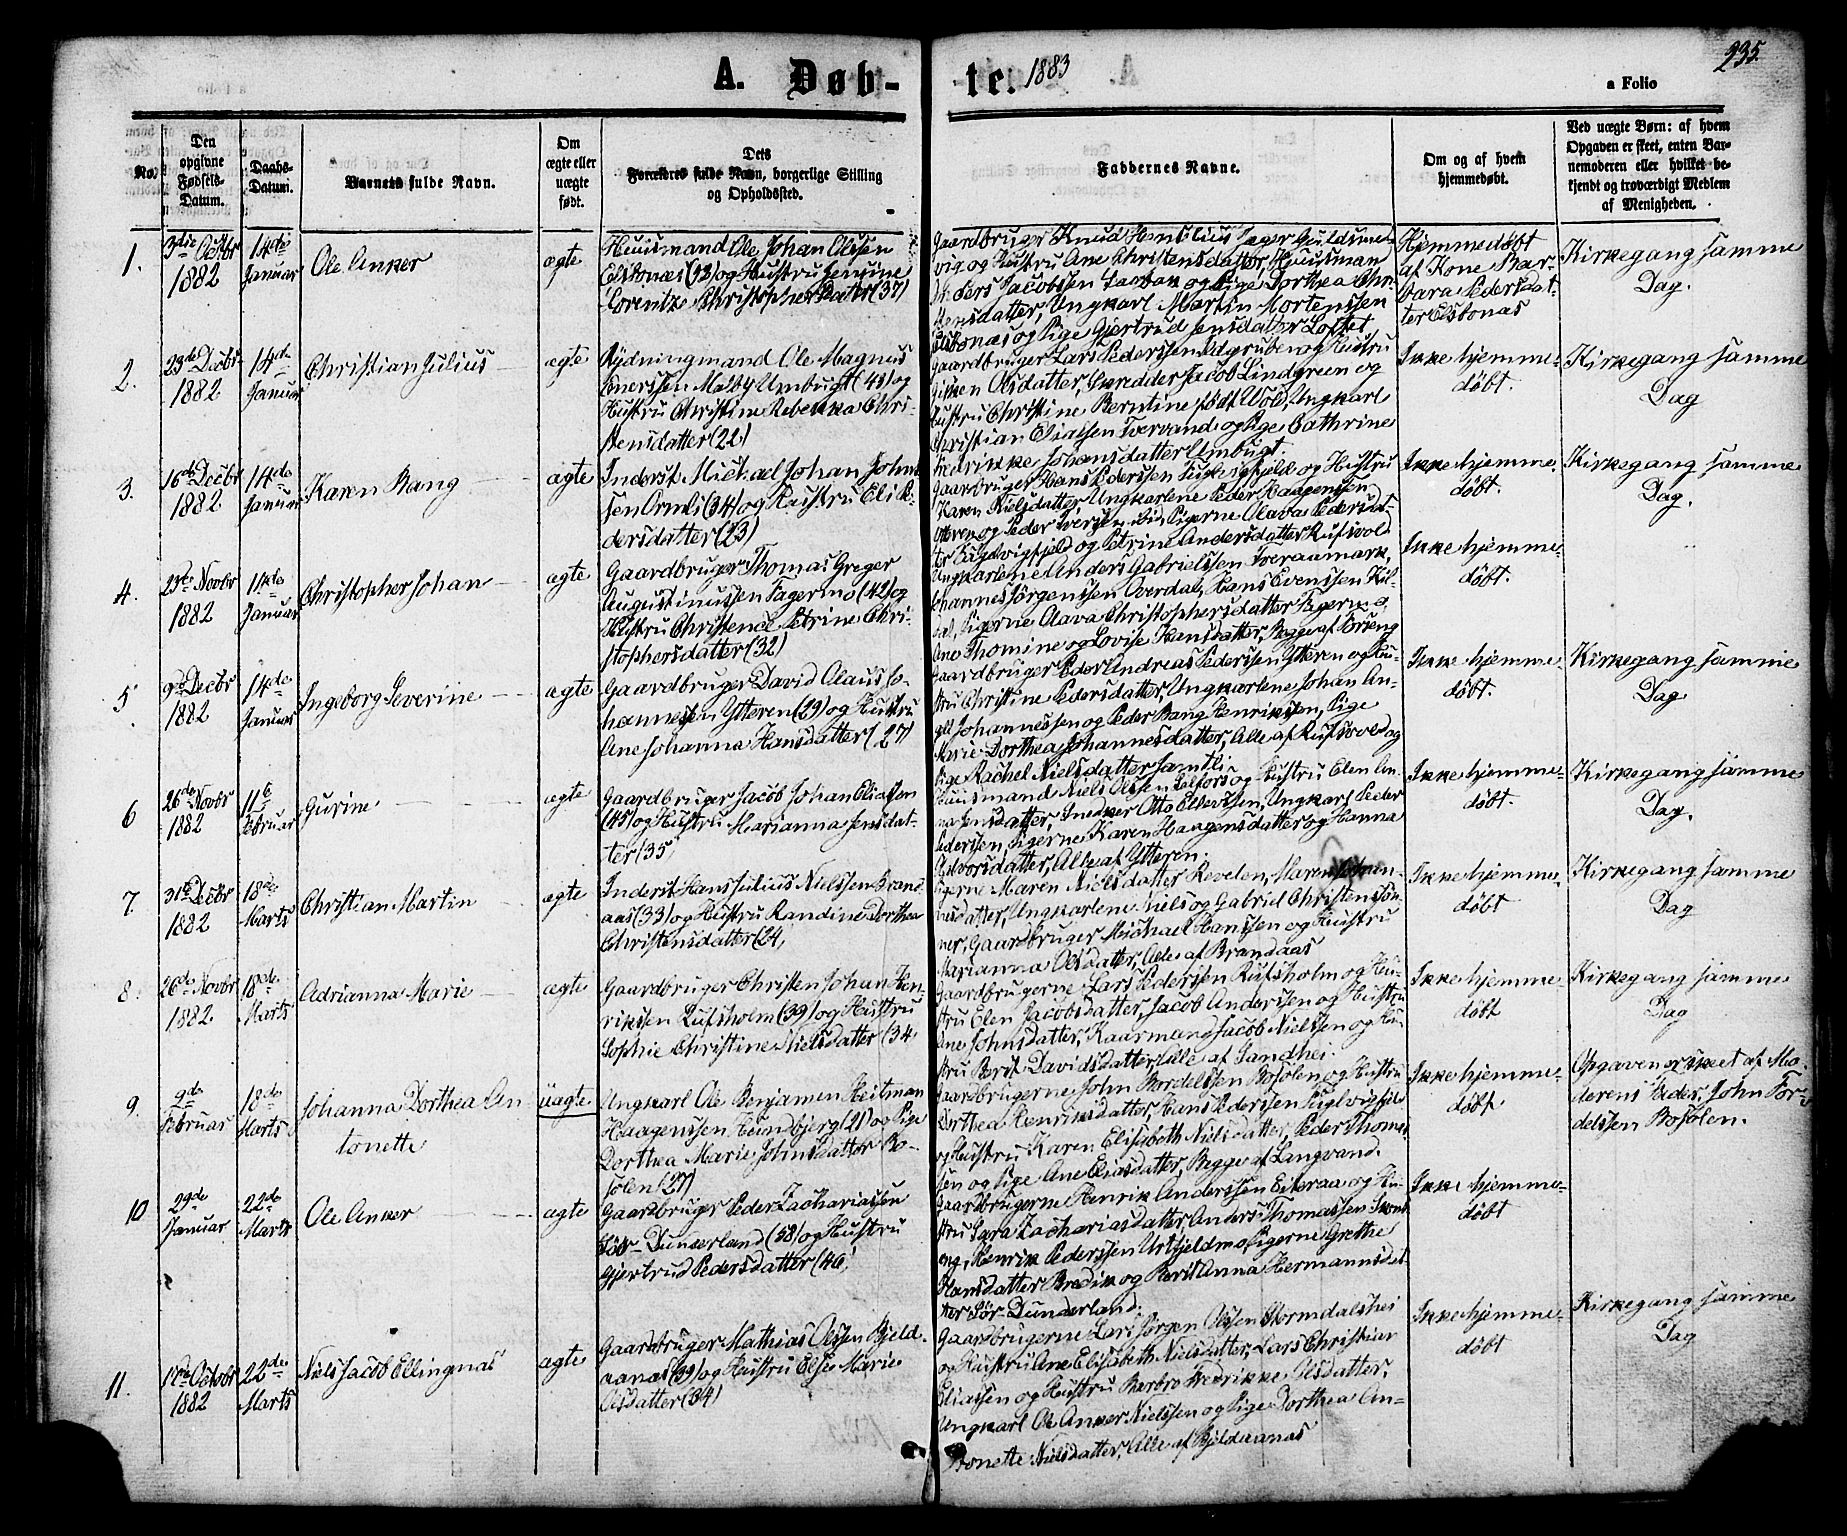 A. Døb-
te. 1883
235.
a Folio
No.
Den
opgivne
Fødsels-
Datum.
Daabs-
Datum.
Barnets fulde Navn.
Om
ægte eller
uægte
født.
Dets
Forældres fulde Navn, borgerlige Stilling
og Opholdssted.
Faddernes Navne.
Om og af hvem
hjemmedøbt.
Ved uægte Børn: af hvem
Opgaven er skeet, enten Bar-
nemoderen eller hvilket be-
kjendt og troværdigt Medlem
af Menigheden.
1.
1882
14de
Januar
Ole Anker
ægte
Huusmand Ole Johan Olssen
og Hustru
Christophersdatter (37)
Gaardbruger Knud
vig og Hustru Ane Christensdatter, Huusman
Peder Jacobssen og Pige Dorthea Chri-
stensdatter, Ungkarl Martin Mortenssen
og Pige Gjertrud Jensdatter
Hjemmedøbt
af Kone Bar-
bara Pedersdat-
ter
Kirkegang samme
Dag.
2.
23de Decbr
1882
14de
Januar
Christian Julius
ægte
Rydningmand Ole Magnus
Umbugt (48) og
Hustru Christine Rebekka Chri-
stensdatter (22)
Gaardbruger Lars Pederssen og Hustru
Olsdatter, Skredder Jacob Lindgreen og
Hustru Christine Berntine født Wold, Ungkarl
Christian Eliassen Tvervand og Pige Cathrine
Fredrikke Johansdatter Umbugt.
Ikke hjemme-
døbt.
Kirkegang samme
Dag
3.
16de Decbr
1882
14de
Januar
Karen Bang
ægte
Inderst Michael Johan John-
sen (34) og Hustru
dersdatter (23)
Gaardbruger Hans Pederssen og Hustru
Karen Nielsdatter, Ungkarlene Peder Haagenssen
Ytteren og Peder Iverssen, Pigerne Olava Pedersdat-
ter og Petrine Andersdatter Rufsvold
Ikke hjemme-
døbt.
Kirkegang samme
Dag.
4.
Novbr
1882
14de
Januar
Christopher Johan
ægte
Gaardbruger Thomas Greger
Augustinussen Fagermo (42) og
Hustru Petrine Chri-
stophersdatter (32)
Ungkarlene Anders Gabrielssen Tveraamark,
Johannes Jørgenssen Overdal, Hans Evenssen Kil-
dal, Pigerne Olava Christophersdatter
Ane Thomine og Lovise Hansdatter, Begge af
Ikke hjemme-
døbt.
5
9de Decbr
1882
14de
Januar
Ingeborg Severine
ægte
Gaardbruger David Olaus Jo-
hannessen Ytteren (29) og Hustru
Ane Johanna Hansdatter (27)
Gaardbruger Peder Andreas Pederssen Ytteren og Hu-
stru Christine Pedersdatter, Ungkarlene Johan An-
Johannessen og Peder Bang Henrikssen, Pige
Marie Dorthea Johannesdatter, Alle af Rufsvold og
Pige Rachel Nielsdatter
Ikke hjemme-
døbt.
Kirkegang samme
Dag
6
26de Novbr
1882
11te
Februar
Gurine
ægte
Gaardbruger Jacob Johan Eliassen
(45) og Hustru Marianna Jensdat-
ter (35)
Huusmand Niels Olssen Selfors og Hustru Elen An-
na Jensdatter, Snedker Otto Ellertsen, Ungkarl Peder
Pederssen, Pigerne Karen Haagensdatter og Hanna
Alle af Ytteren.
Ikke hjemme-
døbt.
Kirkegang samme
Dag.
7.
31te Decbr
1882
18de
Marts
Christian Martin
ægte
Inderst Hans Julius Nielssen Brand-
aas (33) og Hustru Randine Dorthea
Christensdatter (24)
Pigerne Maren Nielsdatter Revelen, Maren
datter, Ungkarlene Niels og Gabriel Christenssøn-
ner, Gaardbruger Michael Hanssen og Hustru
Marianna Olsdatter, Alle af Brandaas
Ikke hjemme-
døbt
Kirkegang samme
Dag
8
26de Novbr
1882
18de
Marts
Adrianna Marie
ægte
Gaardbruger Christen Johan Hen-
rikssen Rufsholm (39) og Hustru
Sophie Christine Nielsdatter (34
Gaardbrugerne Lars Pederssen Rufsholm og Hu-
stru Elen Jacobsdatter, Jacob Anderssen og Hustru
Ane Johnsdatter, Kaarmand Jacob Nielssen og Hu-
stru Berit Davidsdatter, Alle af Sandhei.
Ikke hjemme-
døbt
Kirkegang samme
Dag
9.
9de
Februar
18de
Marts
Johanna Dorthea An
tonette
uægte
Ungkarl Ole Benjamin Heitman
Haagenssen (21) og Pige
Dorthea Marie Johnsdatter Bo-
solen (27)
Gaardbrugerne John Bordelssen Bosolen og Hustru
Dorthea Henriksdatter, Hans Pederssen
og Hustru Karen Elisabeth Nielsdatter, Peder Thomas-
sen og Pige Ane Eliasdatter, Begge af Langvand.
Ikke hjemme-
døbt
Opgaven er skeet af Mo-
derens Fader, John
delssen Bosolen.
10
29de
Januar
22de
Marts
Ole Anker
ægte
Gaardbruger Peder Zachariassen
Sør-Dunderland (38) og Hustru
Gjertrud Pedersdatter (46)
Gaardbrugerne Henrik Anderssen Eiteraa og Hu-
stru Sara Zachariasdatter, Anders Thomassen
eng, Henrik Pederssen Urtfjeldmo, Pigerne Grethe
Hansdatter Bredik og Berit Anna Hermannsdat
ter Sør-Dunderland.
Ikke hjemme-
døbt
11.
Octobr
1882
22de
Marts
Niels Jacob Ellingnas
ægte
Gaardbruger Mathias Olssen Bjeld-
aanas (39) og Hustru Else Marie
Olsdatter (34)
Gaardbrugerne Lars Jørgen Olssen Stormdalshei
og Hustru Ane Elisabeth Nielsdatter, Lars Christian
Eliassen og Hustru Barbro Fredrikke Olsdatter,
Ungkarl Ole Anker Nielssen og Pige Dorthea An-
tonette Nielsdatter, Alle af Bjeldaanas
Ikke hjemme-
døbt
Kirkegang samme
Dag